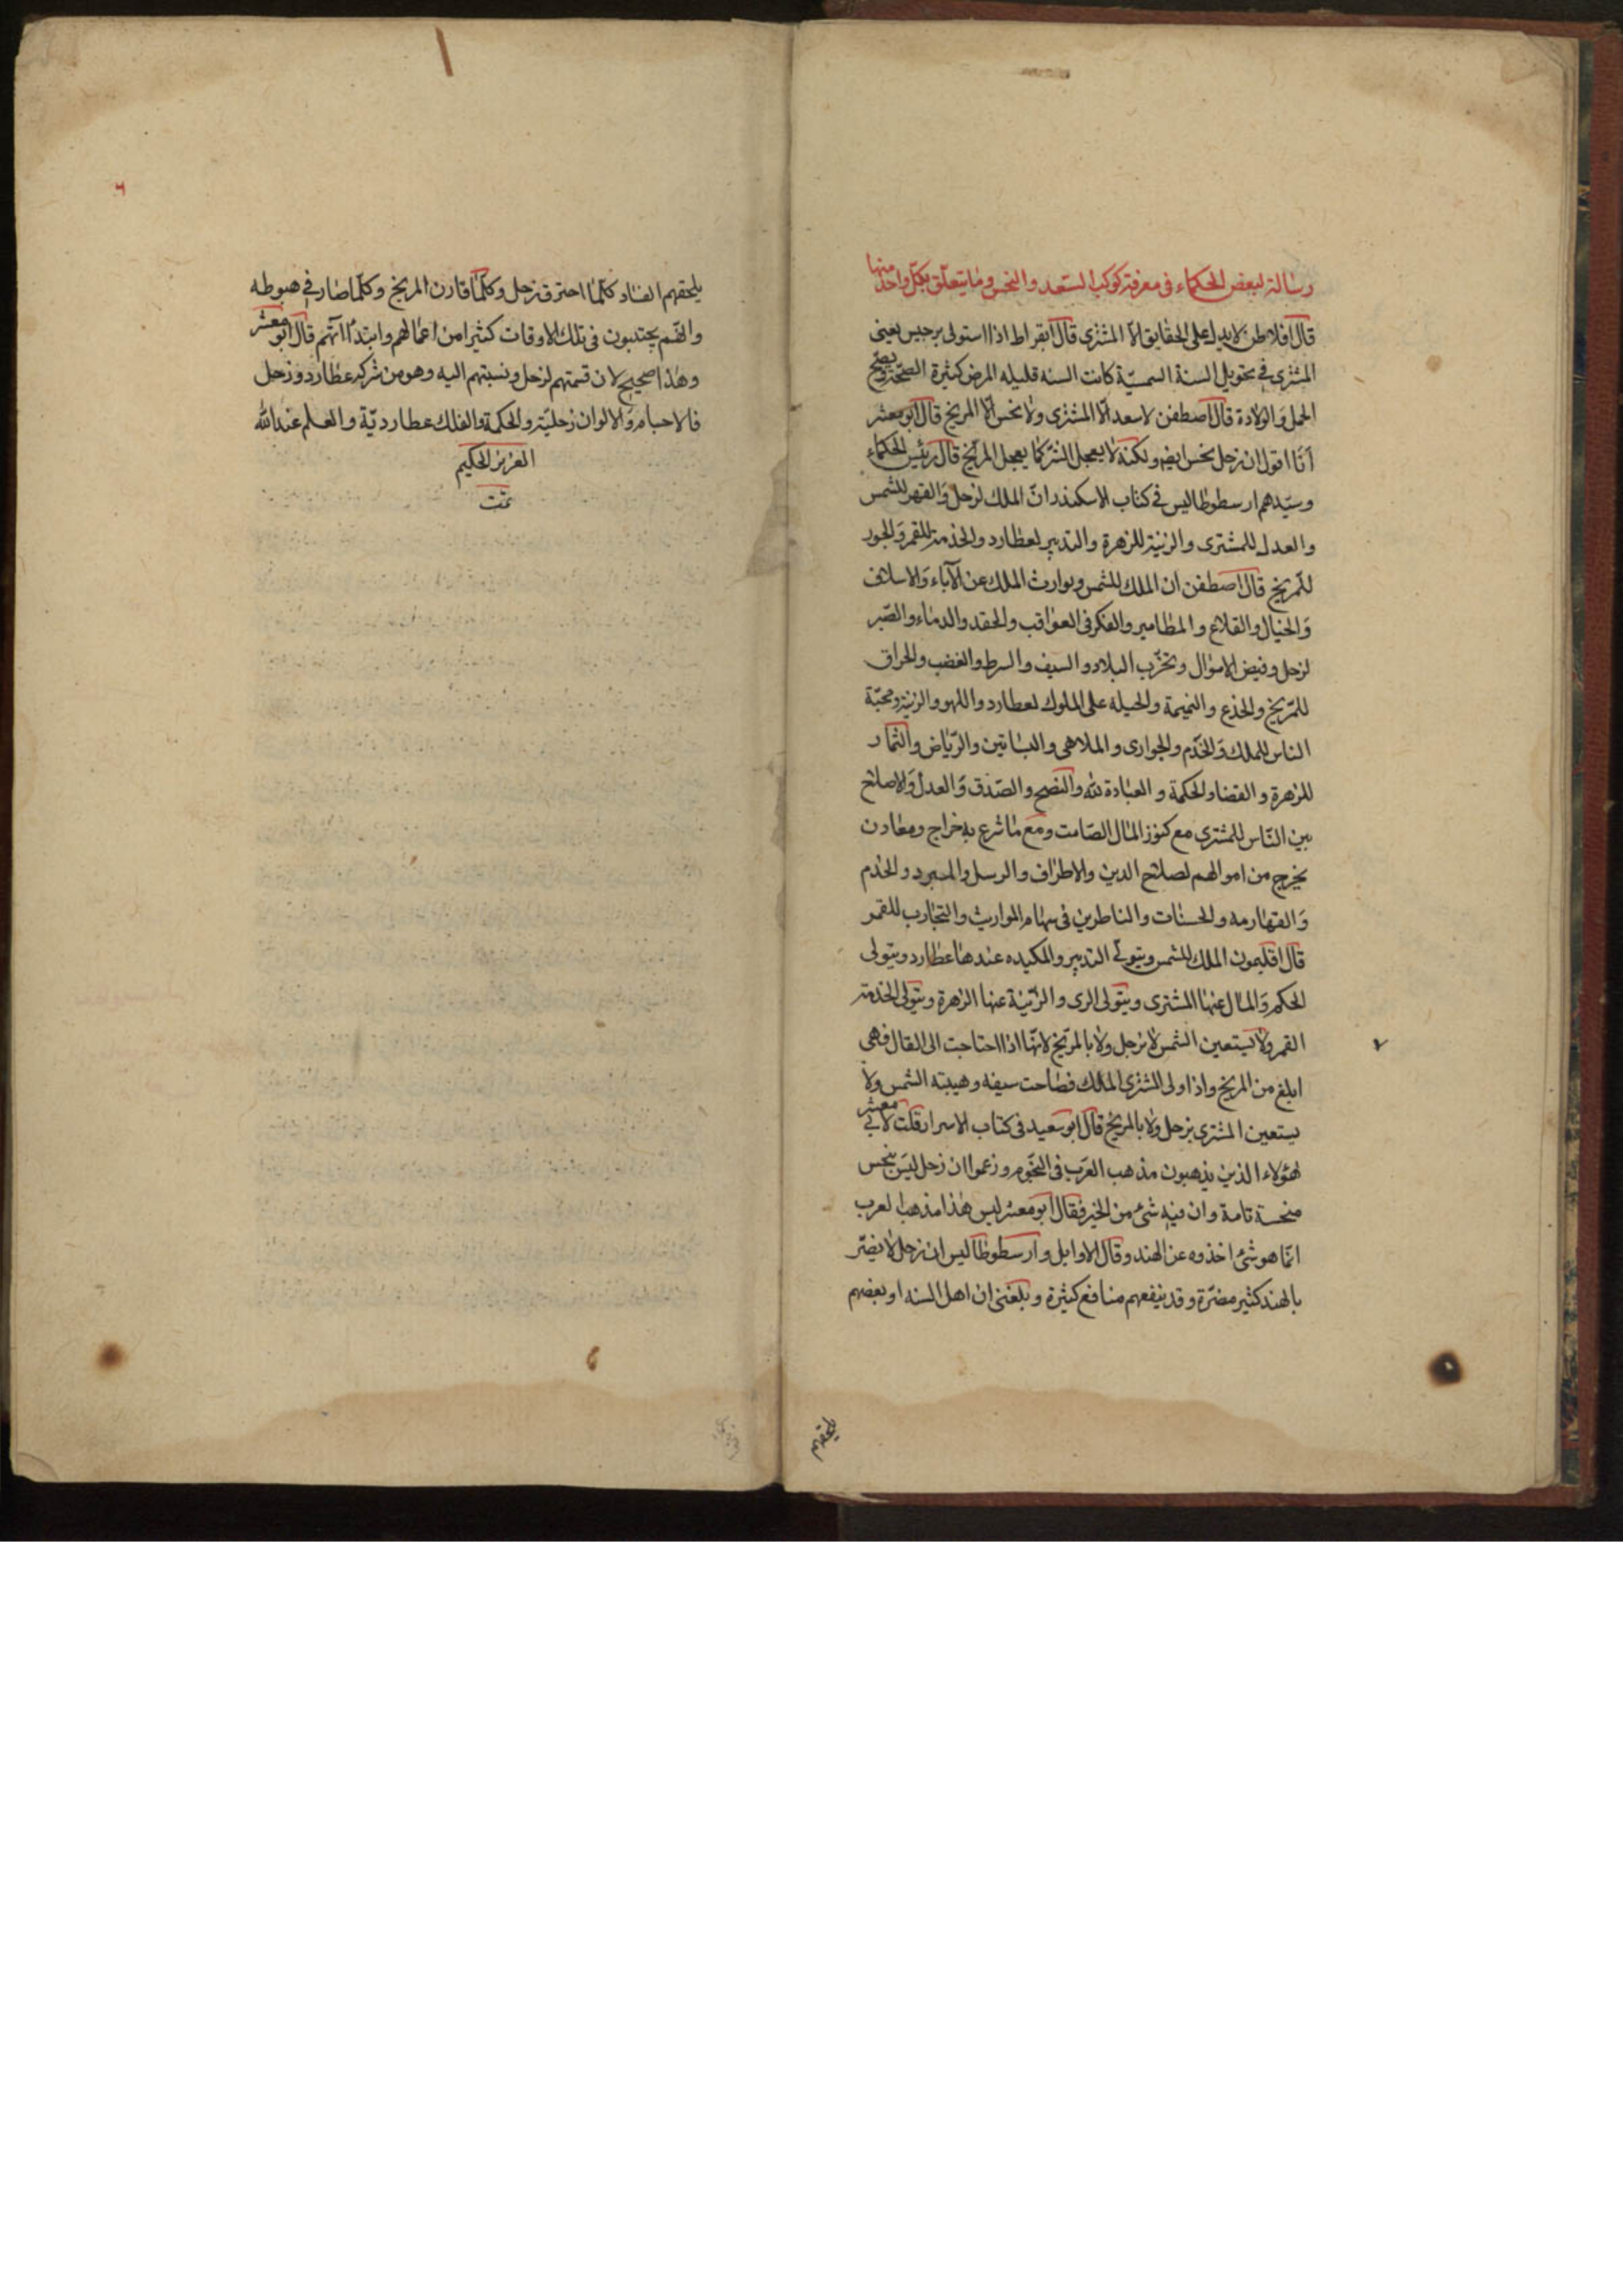 رسالة لبعض الحكماء فى معرفة كوكب السعد والنحس وما يتعلق بكل واحد منها
قال افلاطن لا يدل على الحقايق الا المشترى قال ابقراط اذا استولى برجيس يعنى
المشترى فى تحويل السنة الشمسيّة كانت السنه قليله المرض كثيرة الصحّة ويصحّ
الحمل والولادة قال اصطفن لا سعد الّا المشترى ولا نحس الّا المريخ قال ابو معشر
انّا اقول ان زحل نحس ايضا ولكنه لا يعجل الشرّ كما يعجل المرّيخ قال رئيس الحكماء
وسيّدهم ارسطوطاليس فى كتاب الاسكندر انّ الملك لزحل والقهر للشمس
والعدل للمشترى والزينة للزهرة والتدبير لعطارد والخدمة للقمر والجور
للمريخ قال اصطفن ان الملك للشمس وتوارث الملك عن الآباء والاسلاف
والجبال والقلاع والمطامير والفكر فى العواقب والحقد والدماء والصّبر
لزحل وفيض الاموال وتخرّب البلاد والسيف والسرط والغضب والحراق
للمرّيخ والخدع والنميمة والحيلة على الملوك لعطارد واللهو والزينة ومحبّة
الناس للملك والخدّم والجوارى والملاهى والبساتين والرّياض والثمار
للزهرة والقضاء والحكمة والعبادة لله والنصح والصّدق والعدل والاصلاح
بين النّاس للمشترى مع كنوز المال الصّامت ومع ما شرع به خراج ومعادن
يخرج من اموالهم لصلاح الدين والاطراف والرسل والبرد والخدم
والقهارمه والحسنات والناظرين فى سهام المواريث والتجارب للقمر
قال اقليمون الملك للشمس ويتولّى التدبير والمكيده عندها عطارد ويتولى
الحكم والمال عنها المشترى ويتولى الرى والزّينة عنها الزهرة ويتولى الخدمة
القمر ولا يستعين الشمس لا بزحل ولا بالمرّيخ لانّها اذا احتاجت الى القتال فهى
ابلغ من المريخ واذا ولى المشترى الملك فصاحت سيفه وهيبته الشمس ولا
يستعين المشترى بزحل ولا بالمريخ قال ابو سعيد فى كتاب الاسرار قلت لابي معشر
هؤلاء الذين يذهبون مذهب العرب فى النجّوم وزعموا ان زحل ليس بنحس
منحسة تامة وان فيه شئ من الخير فقال ابو معشر ليس هذا مذهب العرب
انّما هو شئ اخذوه عن الهند وقال الاوايل وارسطوطاليس ان زحل لا يضرّ
بالهند كثير مضرّة وقد ينفعهم منافع كثيرة وبلغنى ان اهل السنه او بعضهم
يلحقهم
يلحقهم الفساد كلّما احترق زحل وكلّما قارن المريخ وكلّما صار فى هبوطه
وانّهم يجتنبون فى تلك الاوقات كثيرا من اعمالهم وابتداآتهم قال ابو معشر
وهذا صحيح لان قسمتهم لزحل ونسبتهم اليه وهو من شركه عطارد وزحل
فالاجسام والالوان زحليّة والحكمة والفلك عطارديّة والعلم عند الله
العزيز الحكيم
تمّت